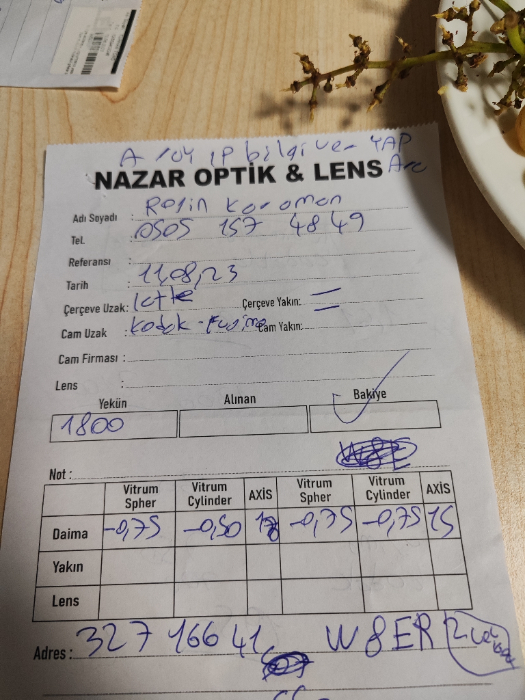 A 104 IP bilgi ver YAP
NAZAR OPTİK & LENS
Adı Soyadı : Rojin Karaman
Tel. : 0505 157 48 49
Referansı :
Tarih : 11,08,23
Çerçeve Uzak: Çerçeve Yakın: —
Cam Uzak : Kodak - Cam Yakın: —
Cam Firması :
Lens :
Yekün Alınan Bakiye
1800
Not : W8E
Vitrum Spher Vitrum Cylinder AXİS Vitrum Spher Vitrum Cylinder AXİS
Daima -0,75 -0,50 -0,75 -0,75 15
Yakın
Lens
Adres : 327 166 41 W8ER